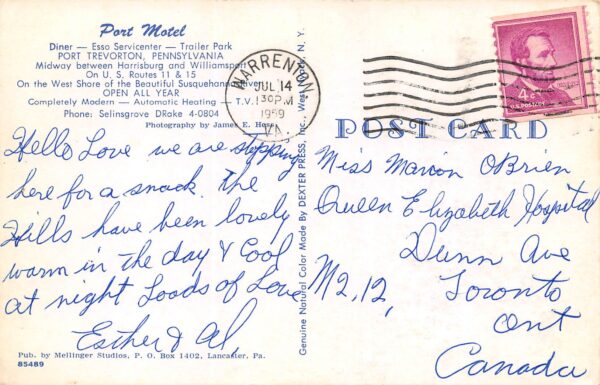 Port Motel
Diner — Esso Servicenter — Trailer Park
PORT TREVORTON, PENNSYLVANIA
Midway between Harrisburg and Williamsport
On U. S. Routes 11 & 15
On the West Shore of the Beautiful Susquehanna
OPEN ALL YEAR
Completely Modern — Automatic Heating — T.V.
Phone: Selinsgrove DRake 4-0804
Photography by James E. Hess
WARRENTON
JUL 14
130 P.M
1959
VA.
4¢
U.S. POSTAGE
POST CARD
Genuine Natural Color Made By DEXTER PRESS, Inc., West Nyack, N. Y.
Hello Love we are stopping
here for a snack. The
Hills have been lovely
warm in the day & Cool
at night Loads of Love
Esther & Al,
Miss Marion OBrien
Queen Elizabeth Hospital
Dunn Ave
M2,12, Toronto
Ont
Canada
Pub. by Mellinger Studios, P. O. Box 1402, Lancaster, Pa.
85489